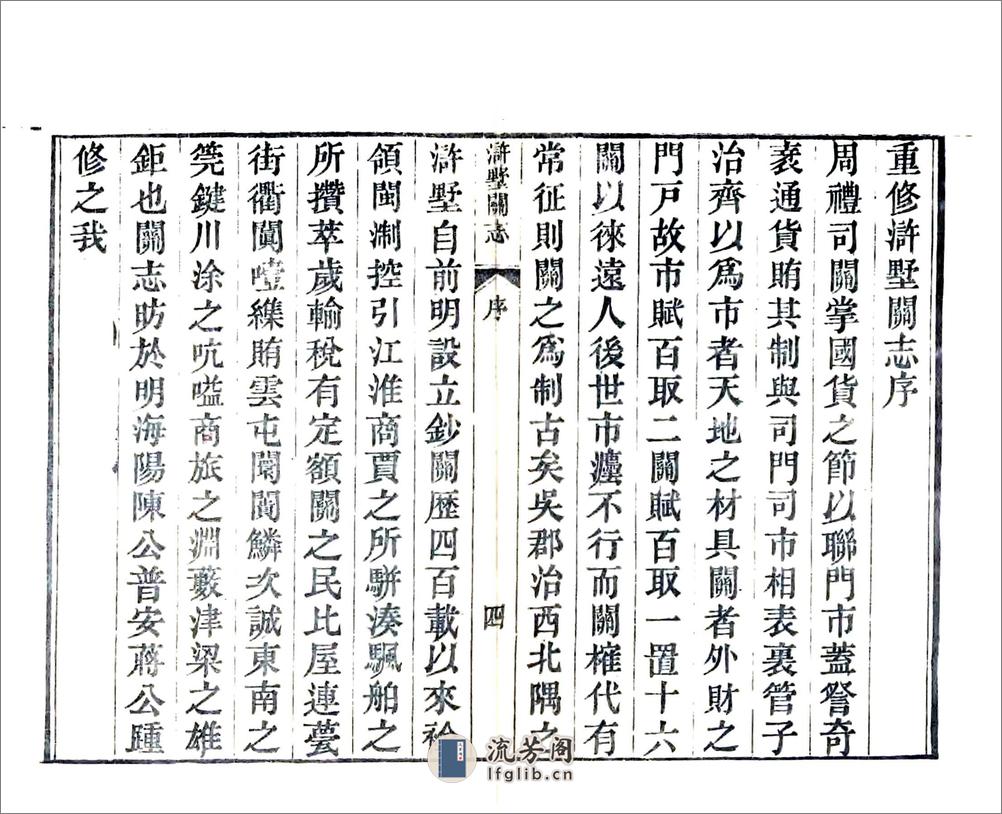 重修滸墅關志序
周禮司關掌國貨之節以聯門市蓋詧奇
袤通貨賄其制與司門司市相表裏管子
治齊以爲市者天地之材具關者外財之
門戸故市賦百取二關賦百取一置十六
關以徠遠人後世市廛不行而關榷代有
常征則關之爲制古矣吳郡治西北隅之
滸墅關志
序
四
滸墅自前明設立鈔關歴四百載以來衿
領閩淛控引江淮商賈之所駢湊颿舶之
所攢萃歲輸稅有定額關之民比屋連甍
街衢闐噎繦賄雲屯闤闠鱗次誠東南之
筦鍵川涂之吭嗌商旅之淵藪津梁之雄
鉅也關志昉於明海陽陳公普安蔣公踵
修之我
流芳阁
lfglib.cn